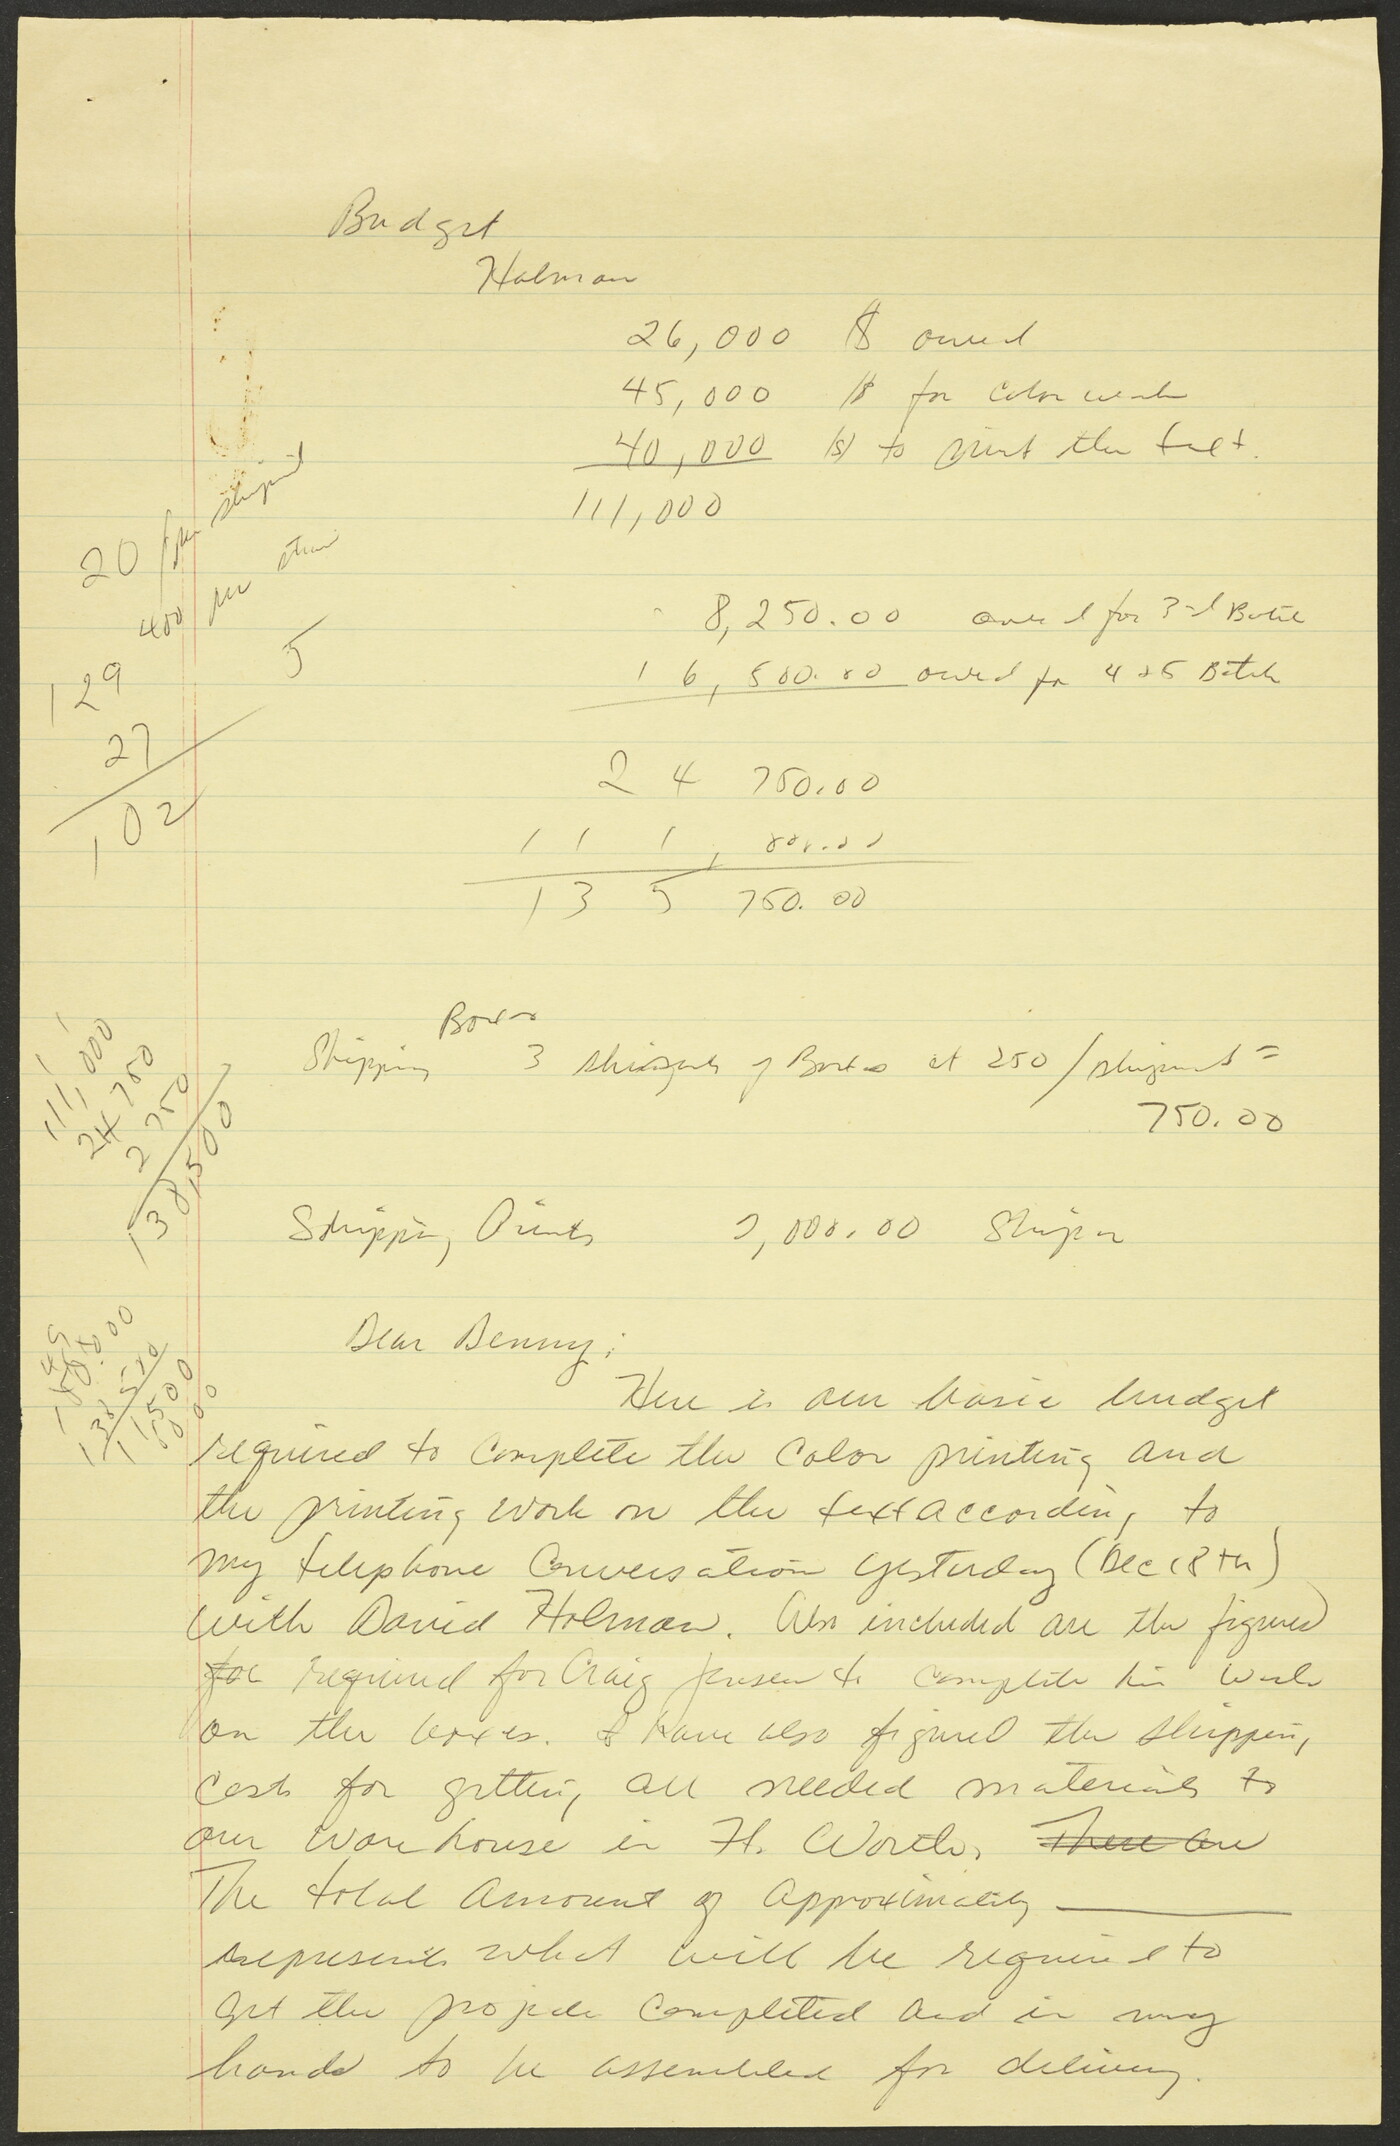 Budget
Holman
26,000 $ owed
45,000 $ for color work
40,000 $ to print the text.
111,000
20 / per shipment
400 per
5
129
27
102
8,250.00 owed for 3rd Batch
16,500.00 owed for 4 & 5 Batch
24 750.00
111,000.00
135 750.00
Boxes
Shipping 3 shipments of Boxes at 250 / shipment =
750.00
111,000
24 750
2 750
138,500
Shipping Prints 2,000.00
138,500
11500
Dear Benny;
Here is our basic budget
required to complete the color printing and
the printing work on the text according to
my telephone conversation yesterday (Dec 18th)
with David Holman. Also included are the figures
for required for Craig Jensen to complete his work
on the boxes. I have also figured the shipping
costs for getting all needed materials to
our warehouse in Ft. Worth. There are
The total amount of approximately ______
represents what will be required to
get the project completed and in my
hands to be assembled for delivery.